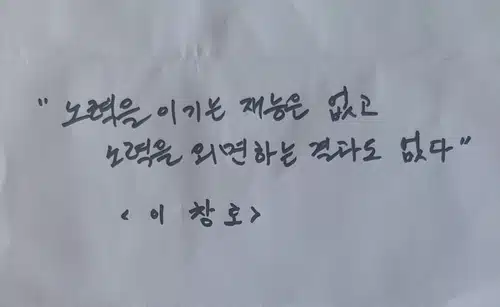 "노력을 이기는 재능은 없고
노력을 외면하는 결과도 없다"
<이 창 호>